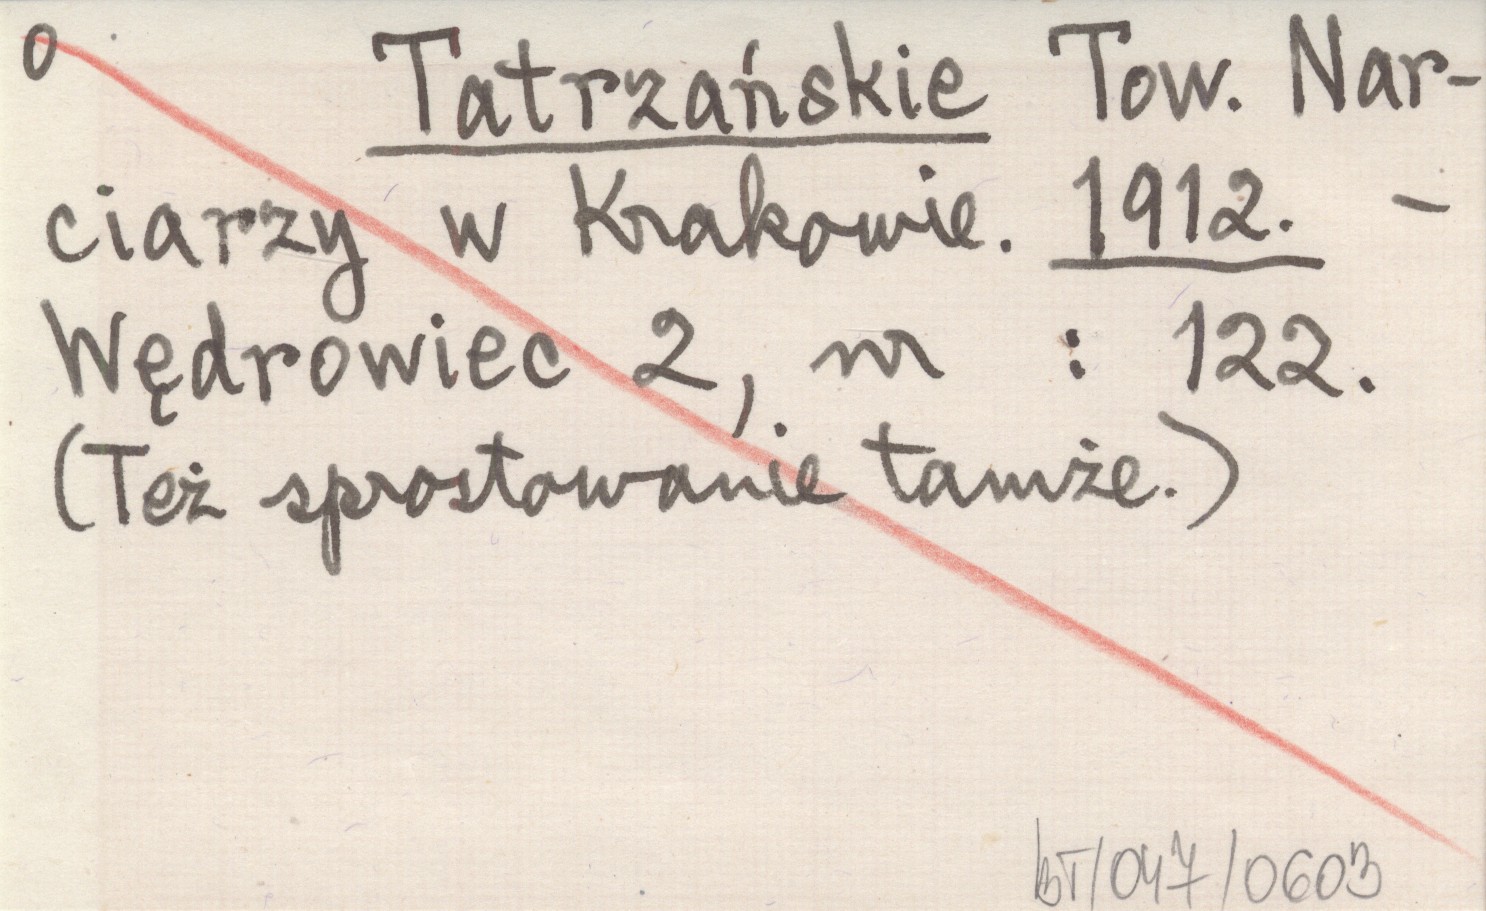 0 Tatrzańskie Tow. Nar-
ciarzy w Krakowie. 1912. -
Wędrowiec 2, nr : 122.
(Też sprostowanie tamże.)
BT/047/0603